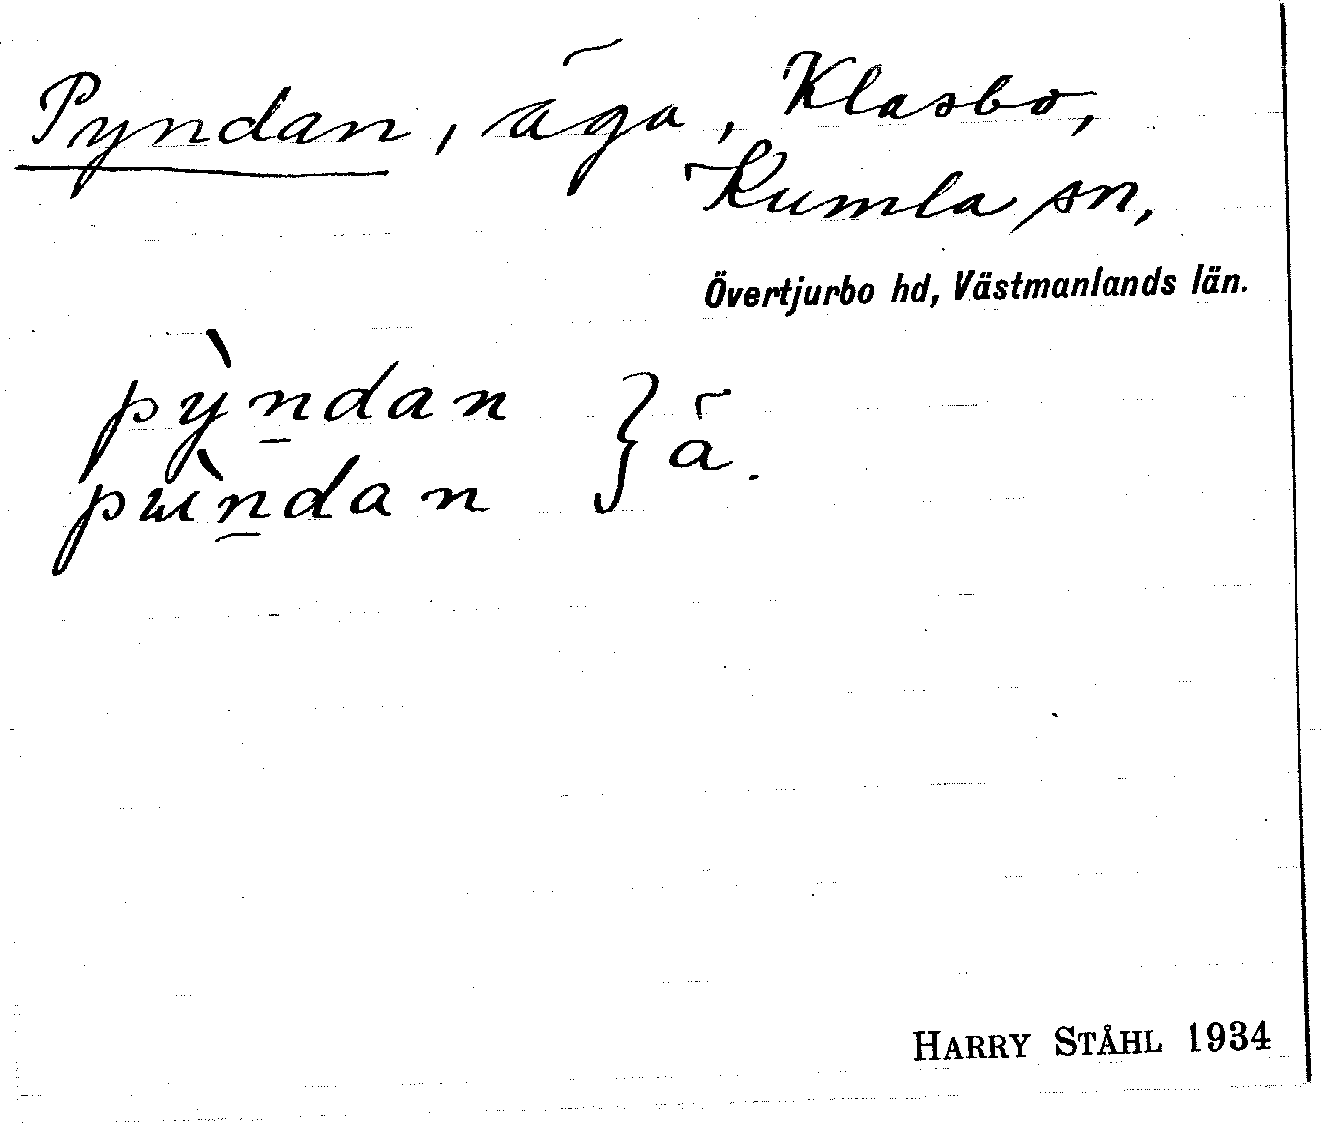 Pyndan, äga, Klasbo,
Kumla sn,
Övertjurbo hd, Västmanlands län.
pỳn̲dan
pɯ̀n̲dan } ä.
HARRY STÅHL 1934